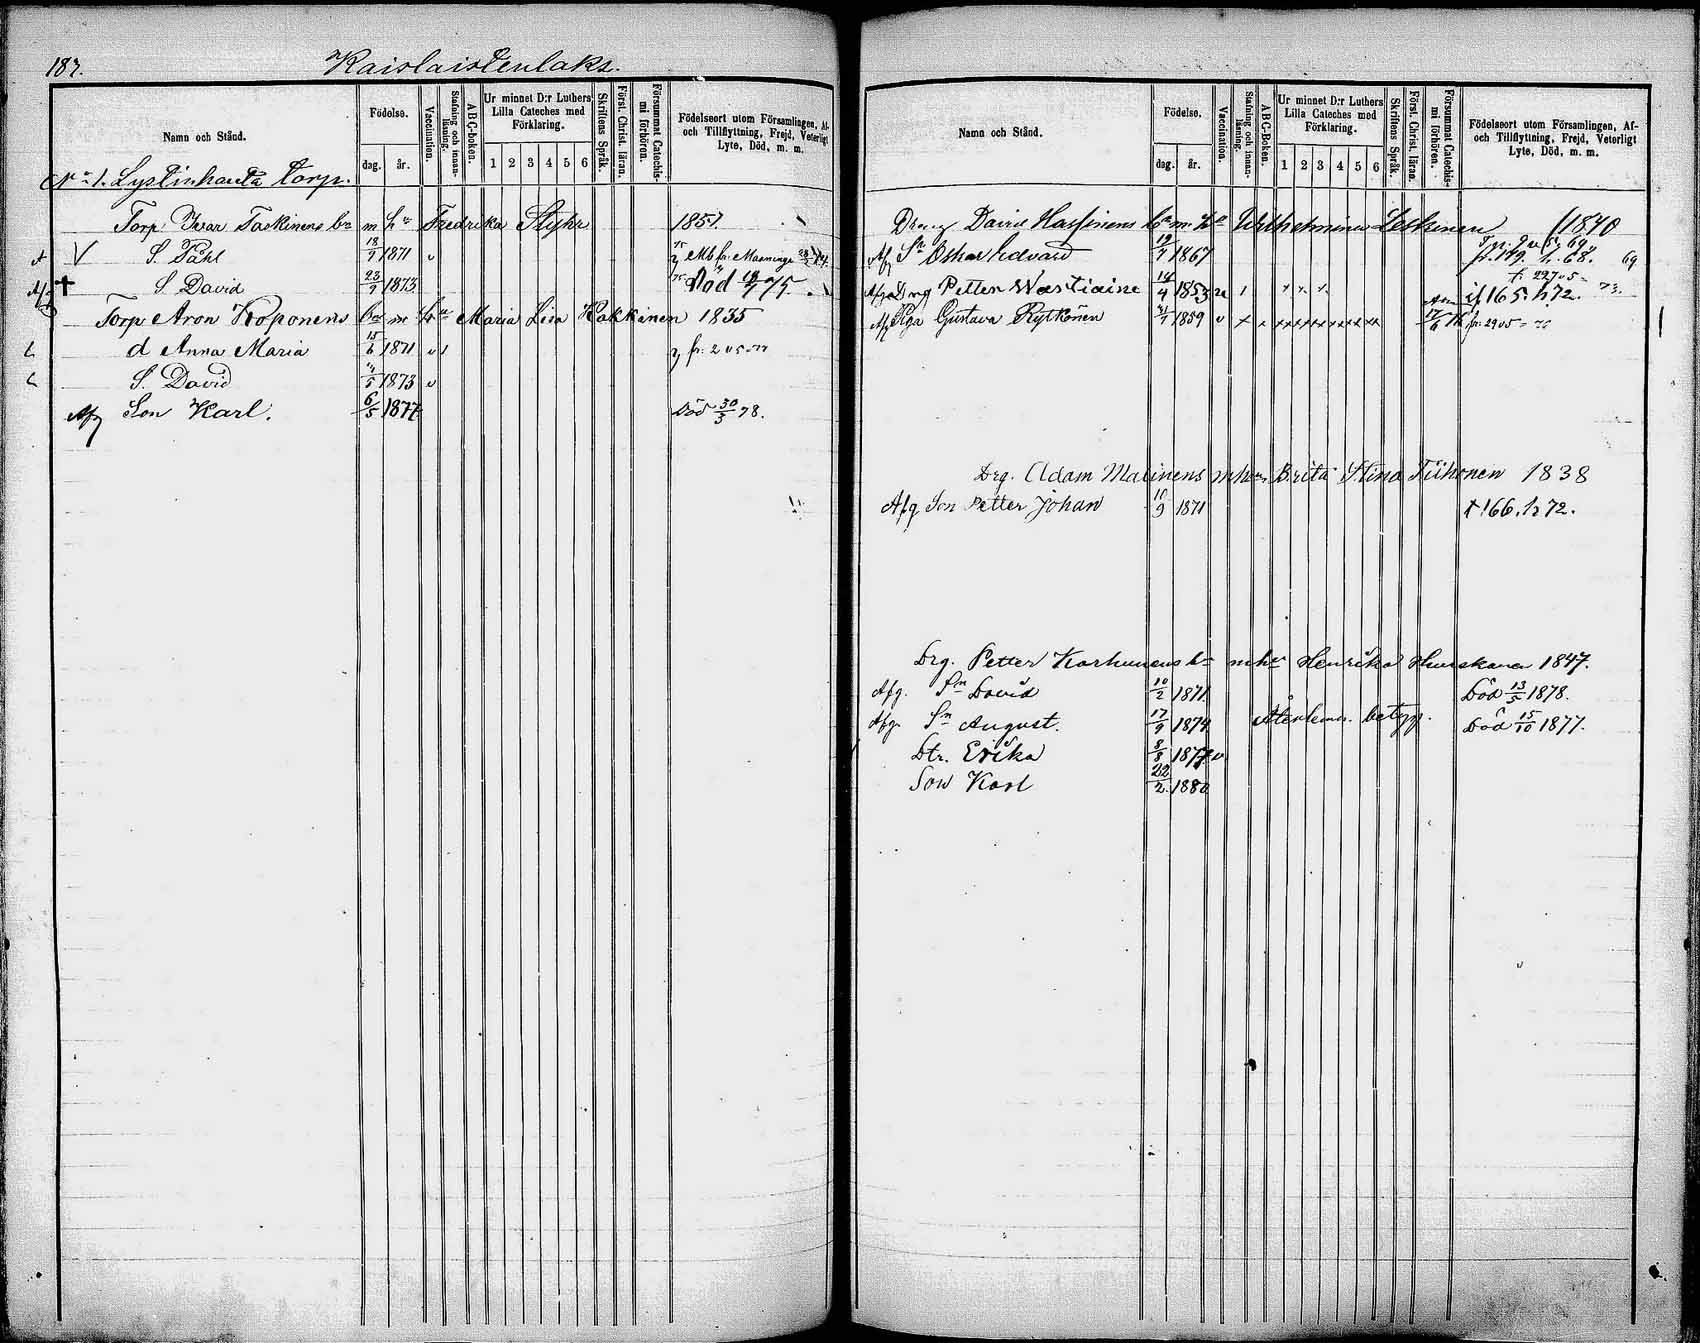 187.
Kaislaistenlaks.
Namn och Stånd.
Födelse.
dag. år.
Vaccination.
Stafning och innan-läsning.
ABC-boken.
Ur minnet D:r Luthers Lilla Cateches med Förklaring.
1 2 3 4 5 6
Skriftens Språk.
Först. Christ. läran.
Försummat Catechis-mi förhören.
Födelseort utom Församlingen, Af- och Tillflyttning, Frejd, Veterligt Lyte, Död, m. m.
No 1. Lystinhauta torp.
Torp. Ivar Taskinens bn m hu Fredrika Styhr 1851.
V S. Påhl 18/7 1871 v
Afg † S. David 23/9 1873 Död 75.
Torp Aron Koponens bn m hu Maria Lisa Kokkinen 1835
d Anna Maria 15/6 1871 v 1
S. David 1873 v
Afg Son Karl. 6/5 1877 Död 30/3 78.
Namn och Stånd.
Födelse.
dag. år.
Vaccination.
Stafning och innan-läsning.
ABC-boken.
Ur minnet D:r Luthers Lilla Cateches med Förklaring.
1 2 3 4 5 6
Skriftens Språk.
Först. Christ. läran.
Försummat Catechis-mi förhören.
Födelseort utom Församlingen, Af- och Tillflyttning, Frejd, Veterligt Lyte, Död, m. m.
Dreng David Hassinens bn m. hu Wilhelmina Leskinen 1840
Afg Sn Oskar Edvard 19/7 1867 69
Afg Drng Petter Wästiäine 14/4 1853 1 x x x 165. h 72. 73.
Afg Piga Gustava Rytkönen 1859 v
Drg. Adam Matinens m hu Brita Stina Tiihonen 1838
Afg Son Petter Johan 10/9 1871 † 166. h 72.
Drg. Petter Karhunens bn m hu Henrika Huuskonen 1847.
Afg. Sn David 10/2 1871. Död 13/5 1878.
Afg. Sn August. 17/9 1874. betyg. Död 15/10 1877.
Dtr. Erika 8/8 1877 v
Son Karl 22/2 1880.